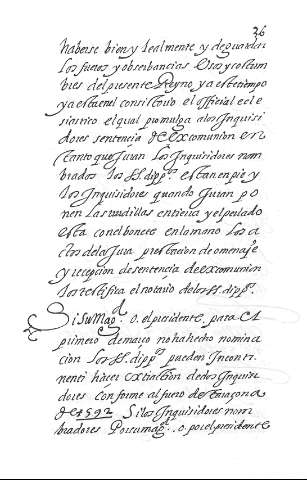 26
haberse bien y Lealmente y deguardar
Los fueros y obserbancias Usos y costum
bres del presente Reyno, ya este tiempo
ya esta en el consistorio el official ecle
siastico el qual promulga a los Inquisi
dores sentencia de excomunion en
tanto que Juran Los Inquisidores nom
brados los SS. dipp.s estan en pie y
los Inquisidores quando Juran po
nen Las rudillas en tierra y el perlado
esta con el bonete en la mano Los a
ctos de la Jura prestacion de omenaje
y recepcion de sentencia de excomunion
Los testifica el notario de los SS. dipp.s
Si su Mag.d o, el presidente, para el
primero de mayo no ha hecho nomina
cion los SS. dipp.s pueden Inconti
nenti hacer extraccion de dos Inquisi
dores conforme al fuero de taraçona
de 1592 Si los Inquisidores nom
bradores Por su mag.d o, por el presidente